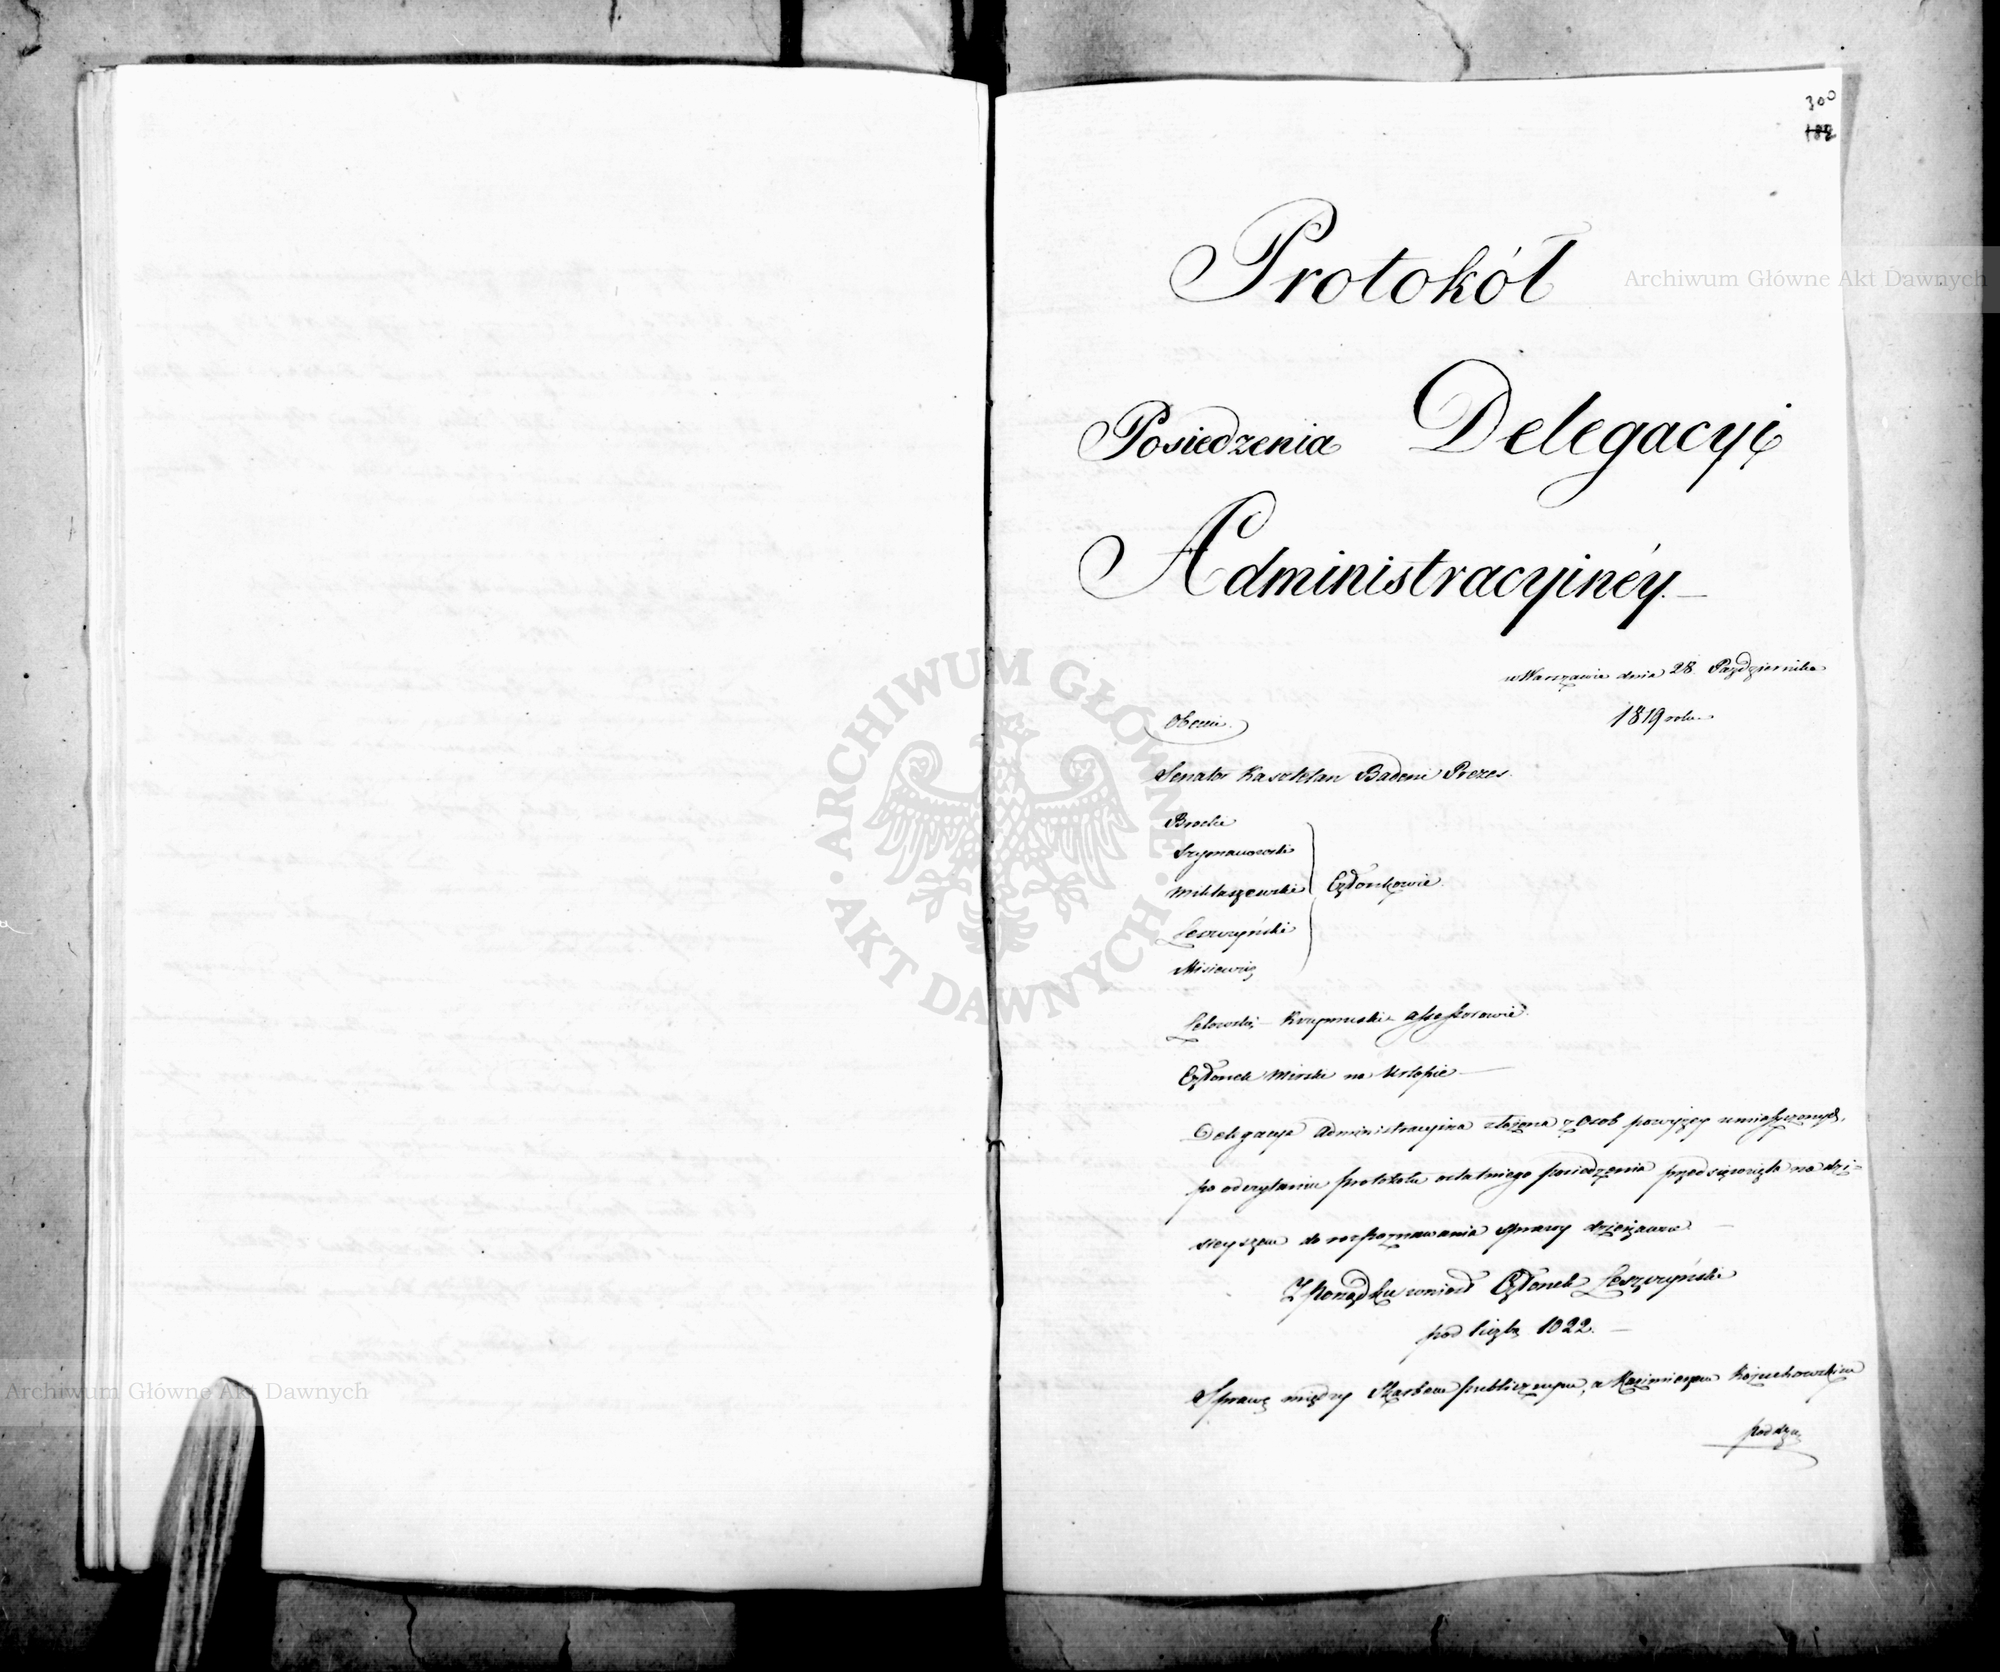 300
182
Protokół
Posiedzenia Delegacyi
Administracyinéy.—
w Warszawie dnia 28. Października
1819 roku.
Obecni.
Senator Kasztelan Badeni Prezes.
Brocki
Szymanowski
Miklaszewski
Członkowie.
Leszczyński
Misiewicz
Lelowski — Krupinski Assessorowie.
Członek Mirski na Urlopie —
Delegacya Administracyina złożona z Osob powyżey umieszczonych,
po odczytaniu protokołu ostatniego posiedzenia przedsięwzięła na dzi-
sieyszem do rozpoznawania sprawy dzierżawne —
Z porządku wniosł Członek Leszczyński
pod liczbą 1022. —
Sprawę między Skarbem publicznym, a Kazimierzem Kożuchowskim
poddzie
Archiwum Główne Akt Dawnych
ARCHIWUM GŁÓWNE
AKT DAWNYCH
Archiwum Główne Akt Dawnych